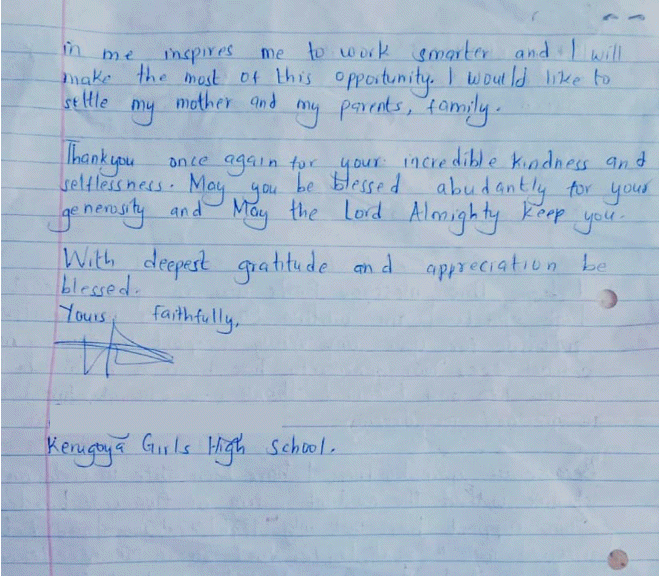 in me inspires me to work smarter and I will
make the most of this opportunity. I would like to
settle my mother and my parents, family.
Thankyou once again for your incredible kindness and
selflessness. May you be blessed abudantly for your
generosity and May the Lord Almighty keep you.
With deepest gratitude and appreciation be
blessed.
Yours faithfully,
Kerugoya Girls High School.